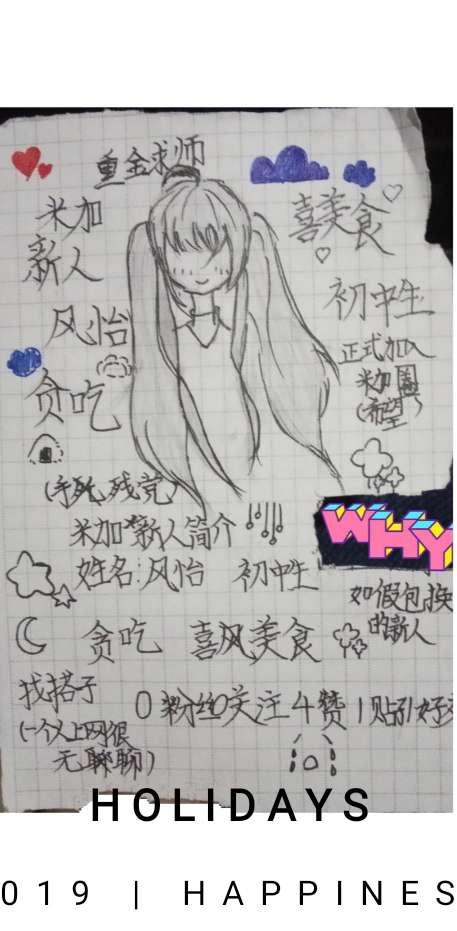 重金求师
米加
新人
风怡
贪吃
喜美食
初中生
正式加入
米加圈
(希望)
(手死,残党)
米加新人简介
姓名:风怡 初中生
贪吃 喜风美食
WHY
如假包换
的新人
找搭子
(一个人上网很
无聊聊)
0粉丝0关注4赞1贴引好
HOLIDAYS
019 | HAPPINES